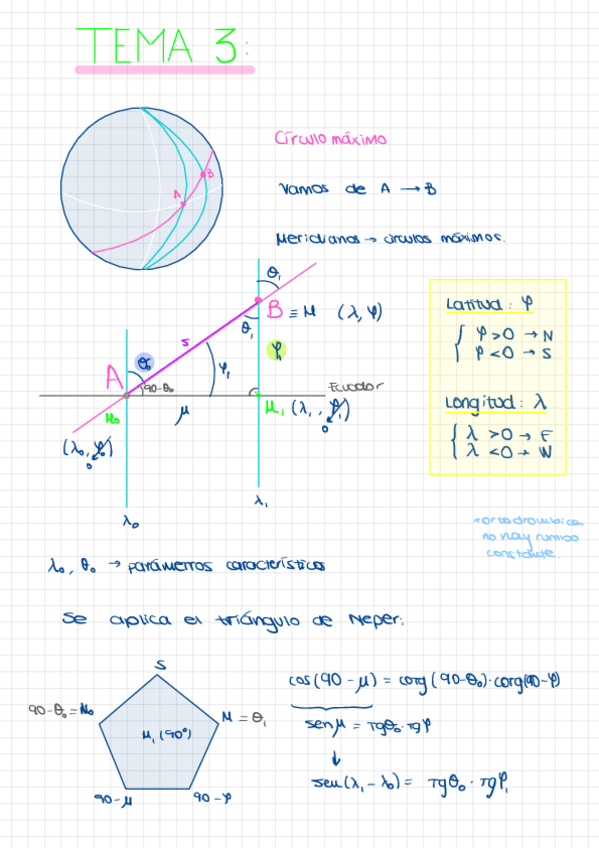 TEMA 3:
Círculo máximo
Vamos de A → B
Meridianos → círculos máximos.
A
B
θ₁
B ≡ M (λ, φ)
θ₁
s
φ
φ₁
A
θ₀
90-θ₀
Ecuador
M₀
μ
M₁ (λ₁, φ₁)
0
(λ₀, φ₀)
0
λ₀
λ₁
Latitud: φ
φ>0 → N
φ<0 → S
Longitud: λ
λ >0 → E
λ <0 → W
*ortodromica
no hay rumbo
constante.
λ₀, θ₀ → parámetros característicos
Se aplica el triángulo de Neper:
S
90-θ₀ = M₀
M = θ₁
M₁ (90°)
90-μ
90-φ
cos(90-μ) = cotg(90-θ₀)·cotg(90-φ)
senμ = Tgθ₀·Tgφ
↓
sen(λ₁-λ₀) = Tgθ₀ · Tgφ₁